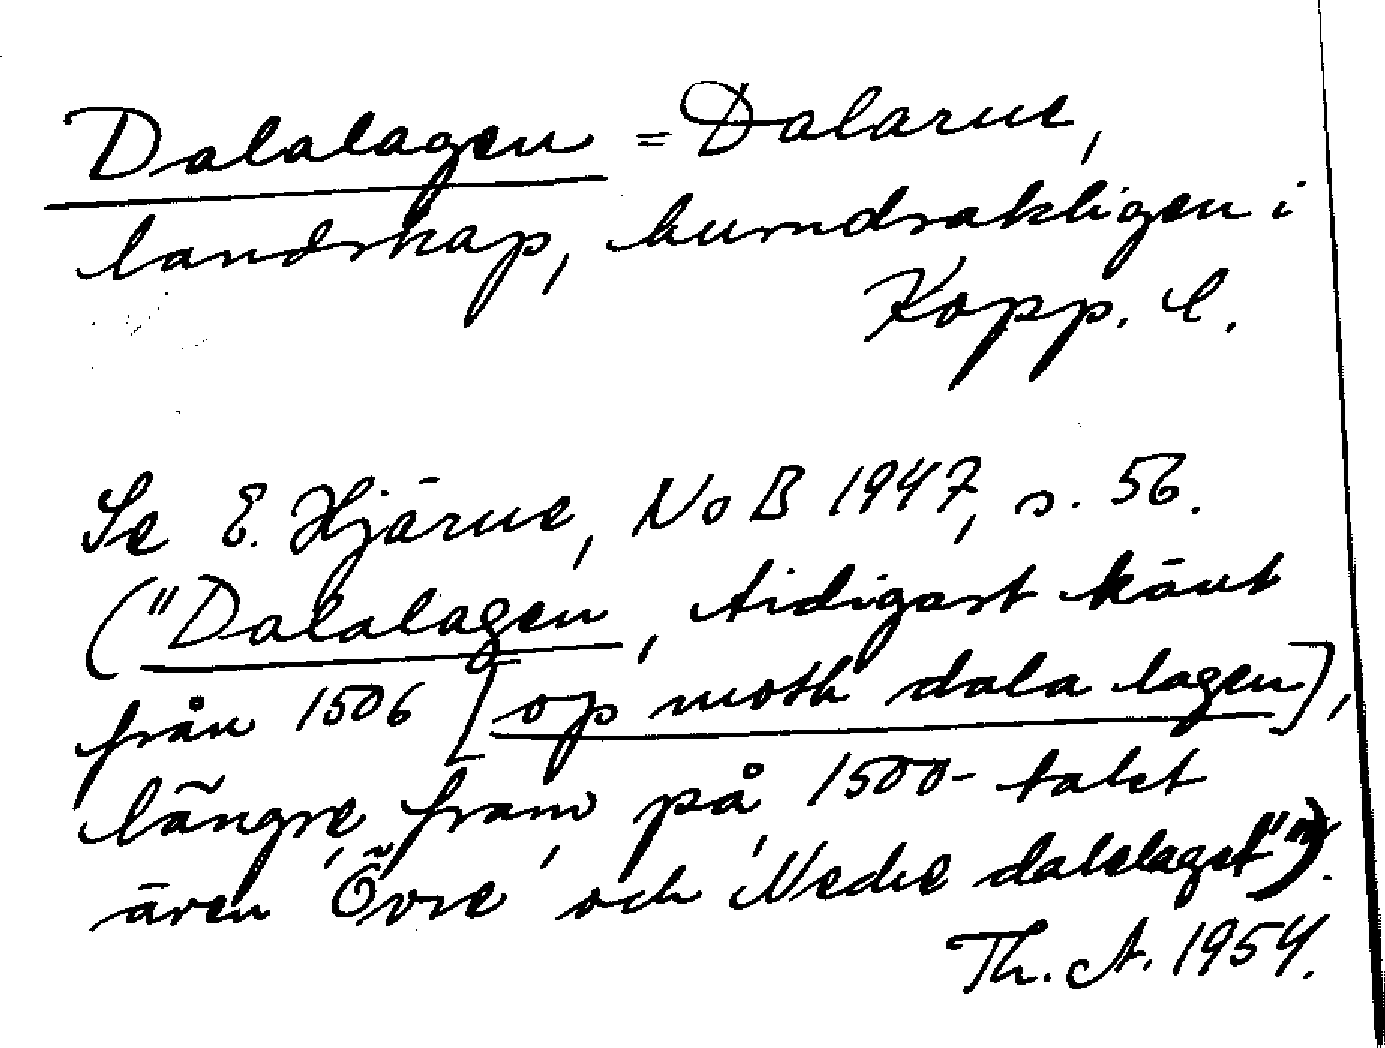 Dalalagen = Dalarne,
landskap, huvudsakligen i
Kopp. l.
Se E. Hjärne, NoB 1947, s. 56.
("Dalalagen, tidigast känt
från 1506 [op moth dala lagen],
längre fram på 1500-talet
även 'Övre' och 'Nedre dalelaget'").
Th. A. 1954.